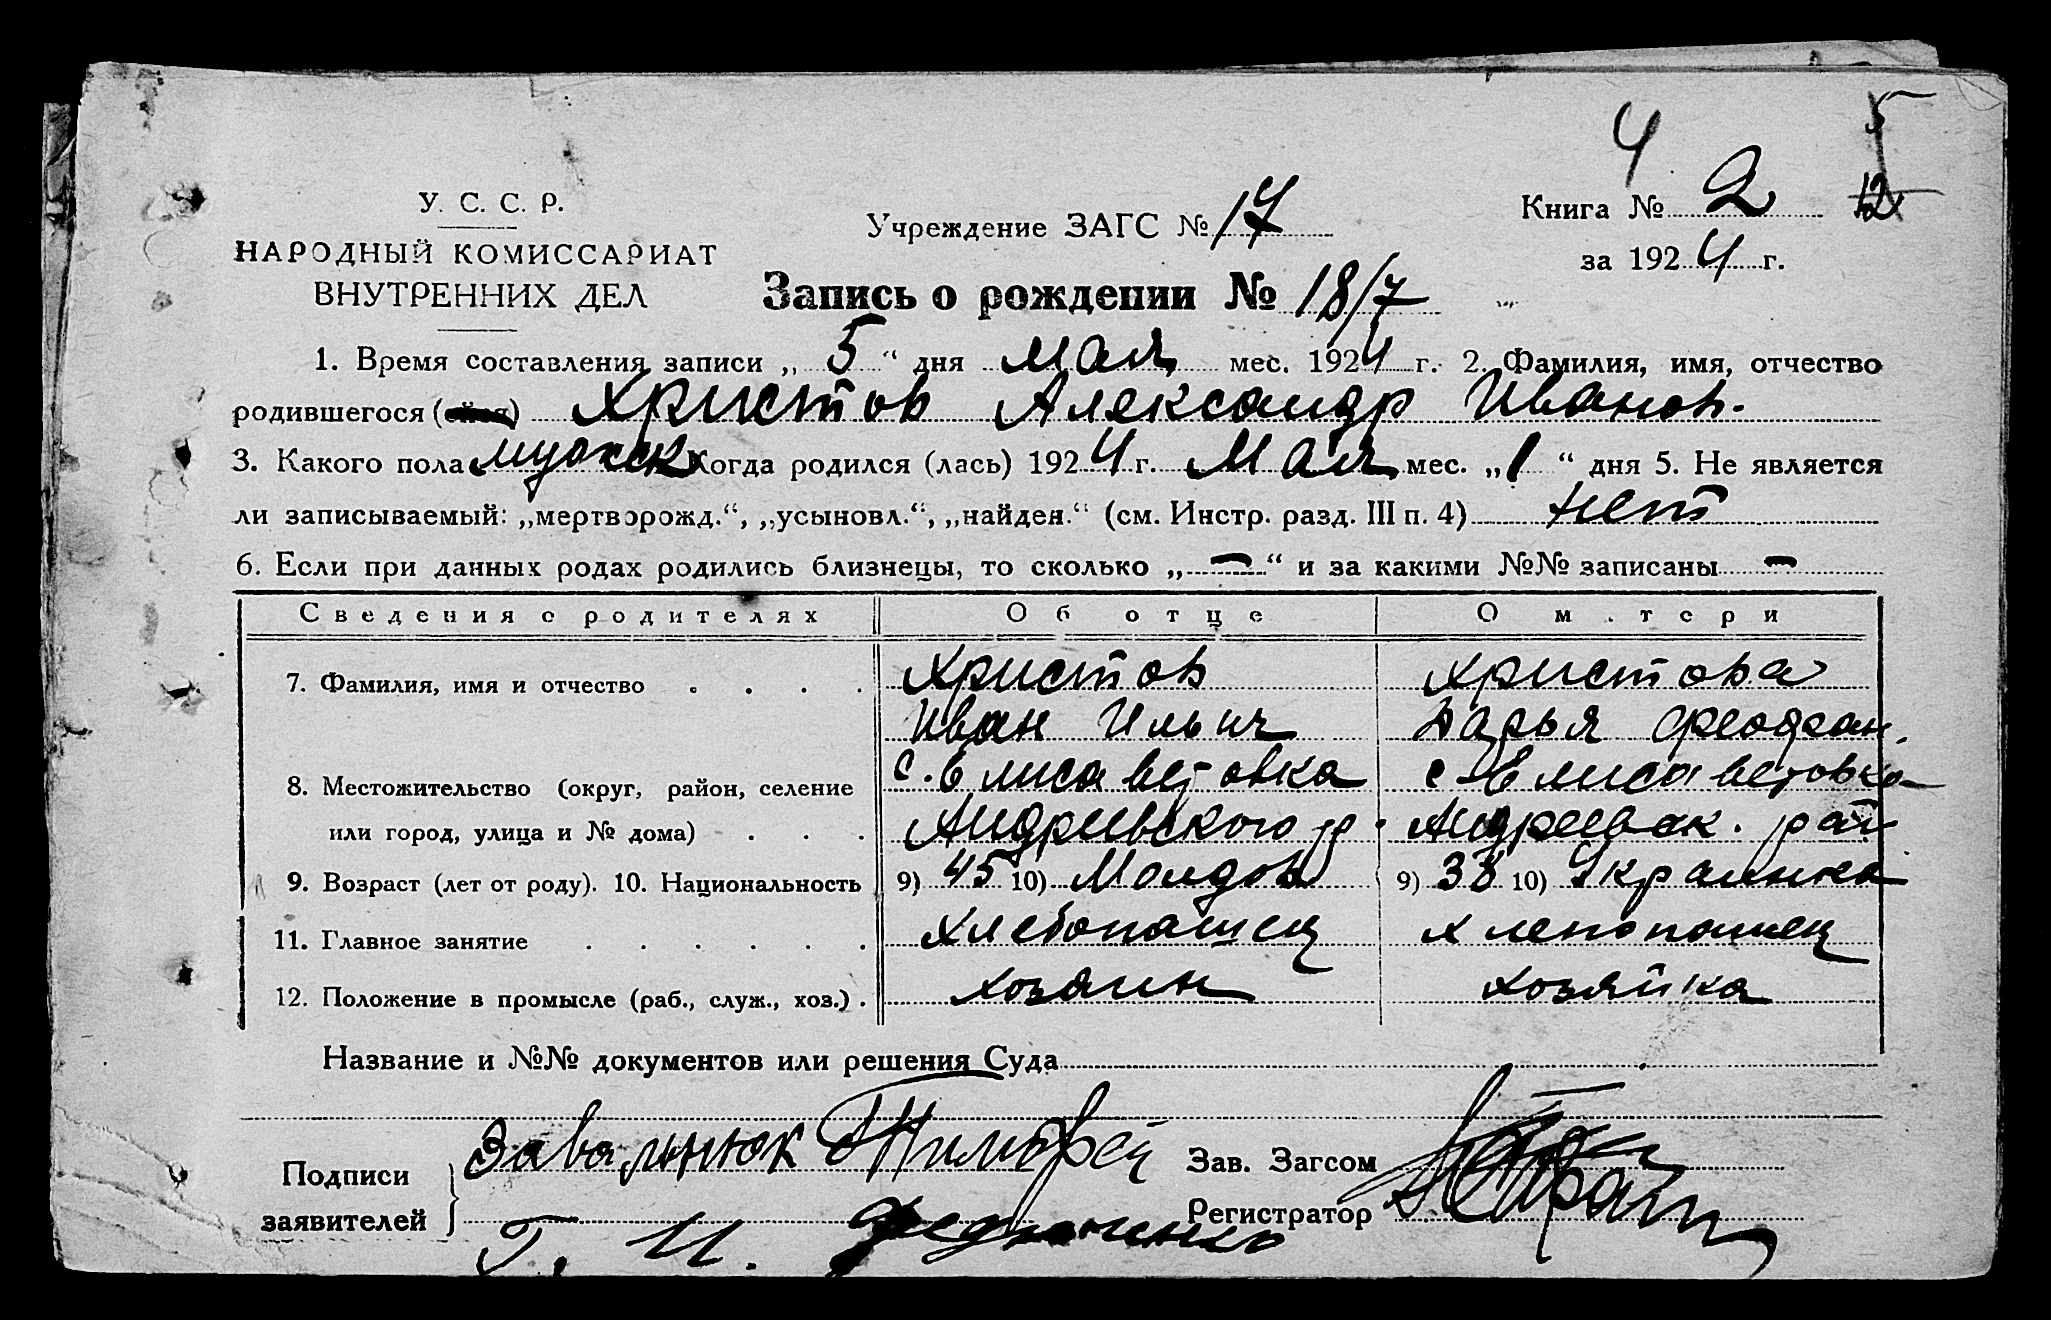 4 5
12
У. С. С. Р.
НАРОДНЫЙ КОМИССАРИАТ
ВНУТРЕННИХ ДЕЛ
Учреждение ЗАГС № 17
Книга № 2
за 1924 г.
Запись о рождении № 18/7
1. Время составления записи „ 5 “ дня мая мес. 1924 г. 2. Фамилия, имя, отчество
родившегося ( ) Христов Александр Иванов.
3. Какого пола мужск Когда родился (лась) 1924 г. Мая мес. „ 1 “ дня 5. Не является
ли записываемый: „мертворожд.“, „усыновл.“, „найден.“ (см. Инстр. разд. III п. 4) нет
6. Если при данных родах родились близнецы, то сколько „ — “ и за какими №№ записаны —
Сведения о родителях Об отце О м.тери
7. Фамилия, имя и отчество . . . . Христов Христова
Иван Ильич Дарья Феодган.
8. Местожительство (округ, район, селение с. Елисаветовка с. Елисаветовка
или город, улица и № дома) . . . Андриевского р. Андреевск. рай
9. Возраст (лет от роду). 10. Национальность 9) 45 10) Молдов 9) 38 10) Украинка
11. Главное занятие . . . . . . Хлебопашец хлепопашец
12. Положение в промысле (раб., служ., хоз.) . хозяин хозяйка
Название и №№ документов или решения Суда
Подписи
заявителей
Завалнюк Тимофей
Г. И. Федюченко
Зав. Загсом
Регистратор